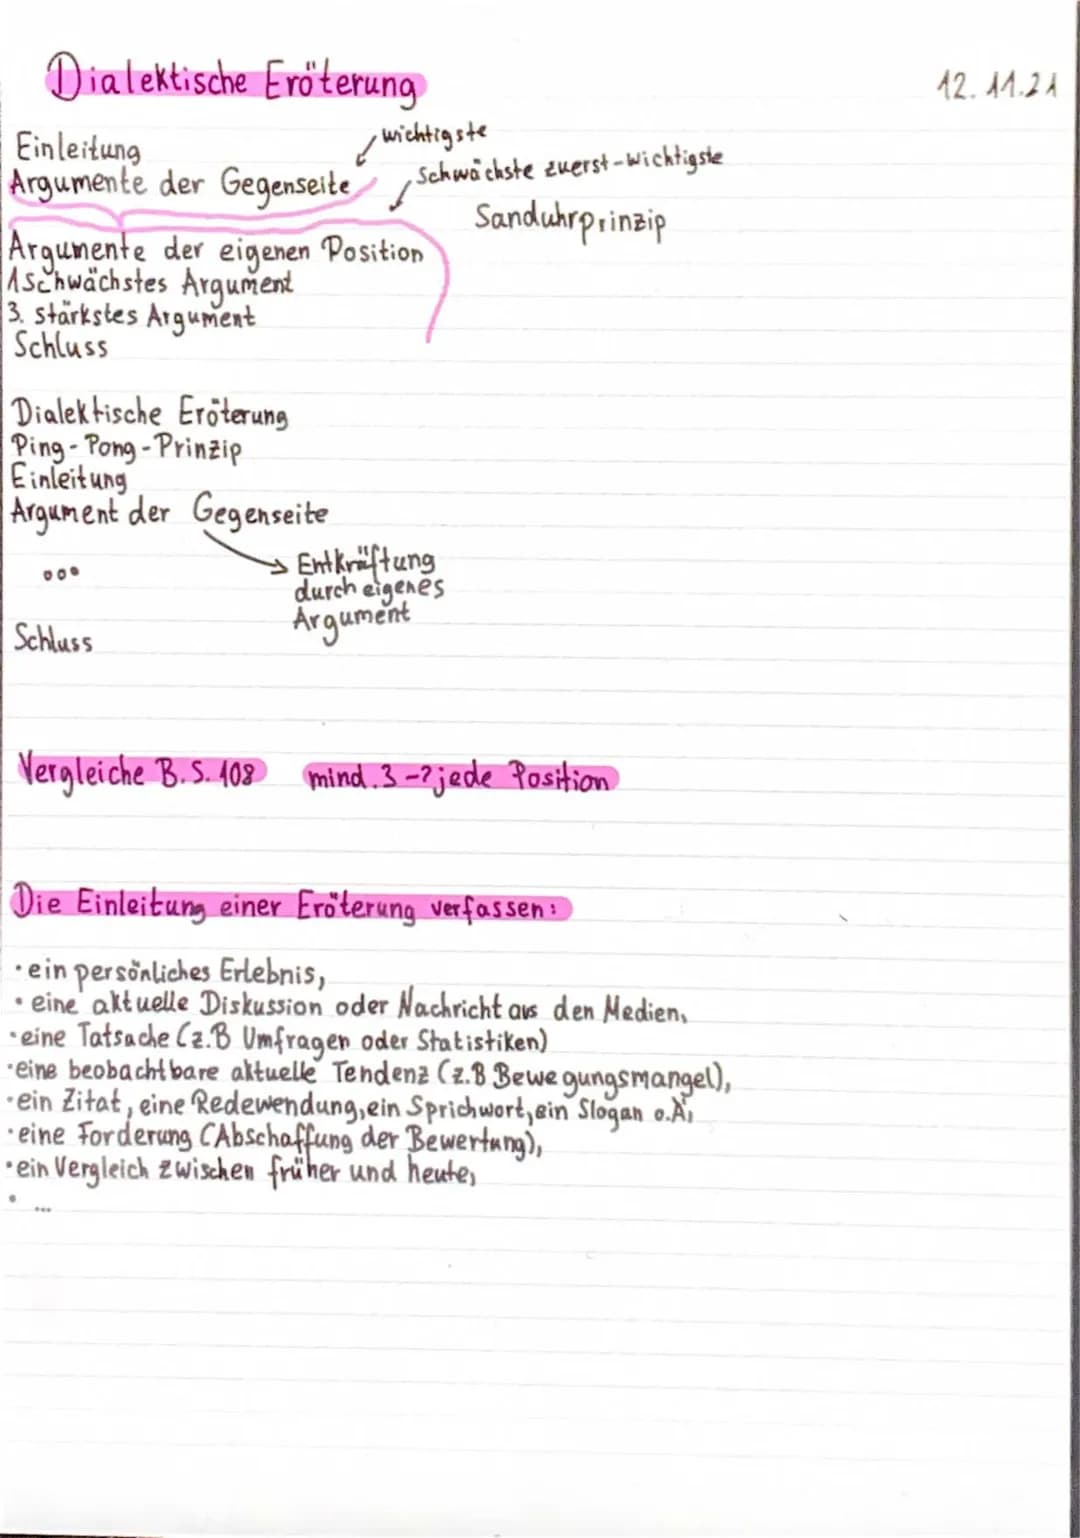 Dialektische Eröterung
12.11.21
Einleitung
wichtigste
Argumente der Gegenseite
Schwächste zuerst-wichtigste
Sanduhrprinzip
Argumente der eigenen Position
1 Schwächstes Argument
3. stärkstes Argument
Schluss
Dialektische Eröterung
Ping-Pong-Prinzip
Einleitung
Argument der Gegenseite
Entkräftung
...
durch eigenes
Argument
Schluss
Vergleiche B.S. 108 mind. 3 -? jede Position
Die Einleitung einer Eröterung verfassen:
· ein persönliches Erlebnis,
· eine aktuelle Diskussion oder Nachricht aus den Medien,
· eine Tatsache (z.B Umfragen oder Statistiken)
· eine beobachtbare aktuelle Tendenz (z.B Bewegungsmangel),
· ein Zitat, eine Redewendung, ein Sprichwort, ein Slogan o.Ä,
· eine Forderung (Abschaffung der Bewertung),
· ein Vergleich zwischen früher und heute,
· ...